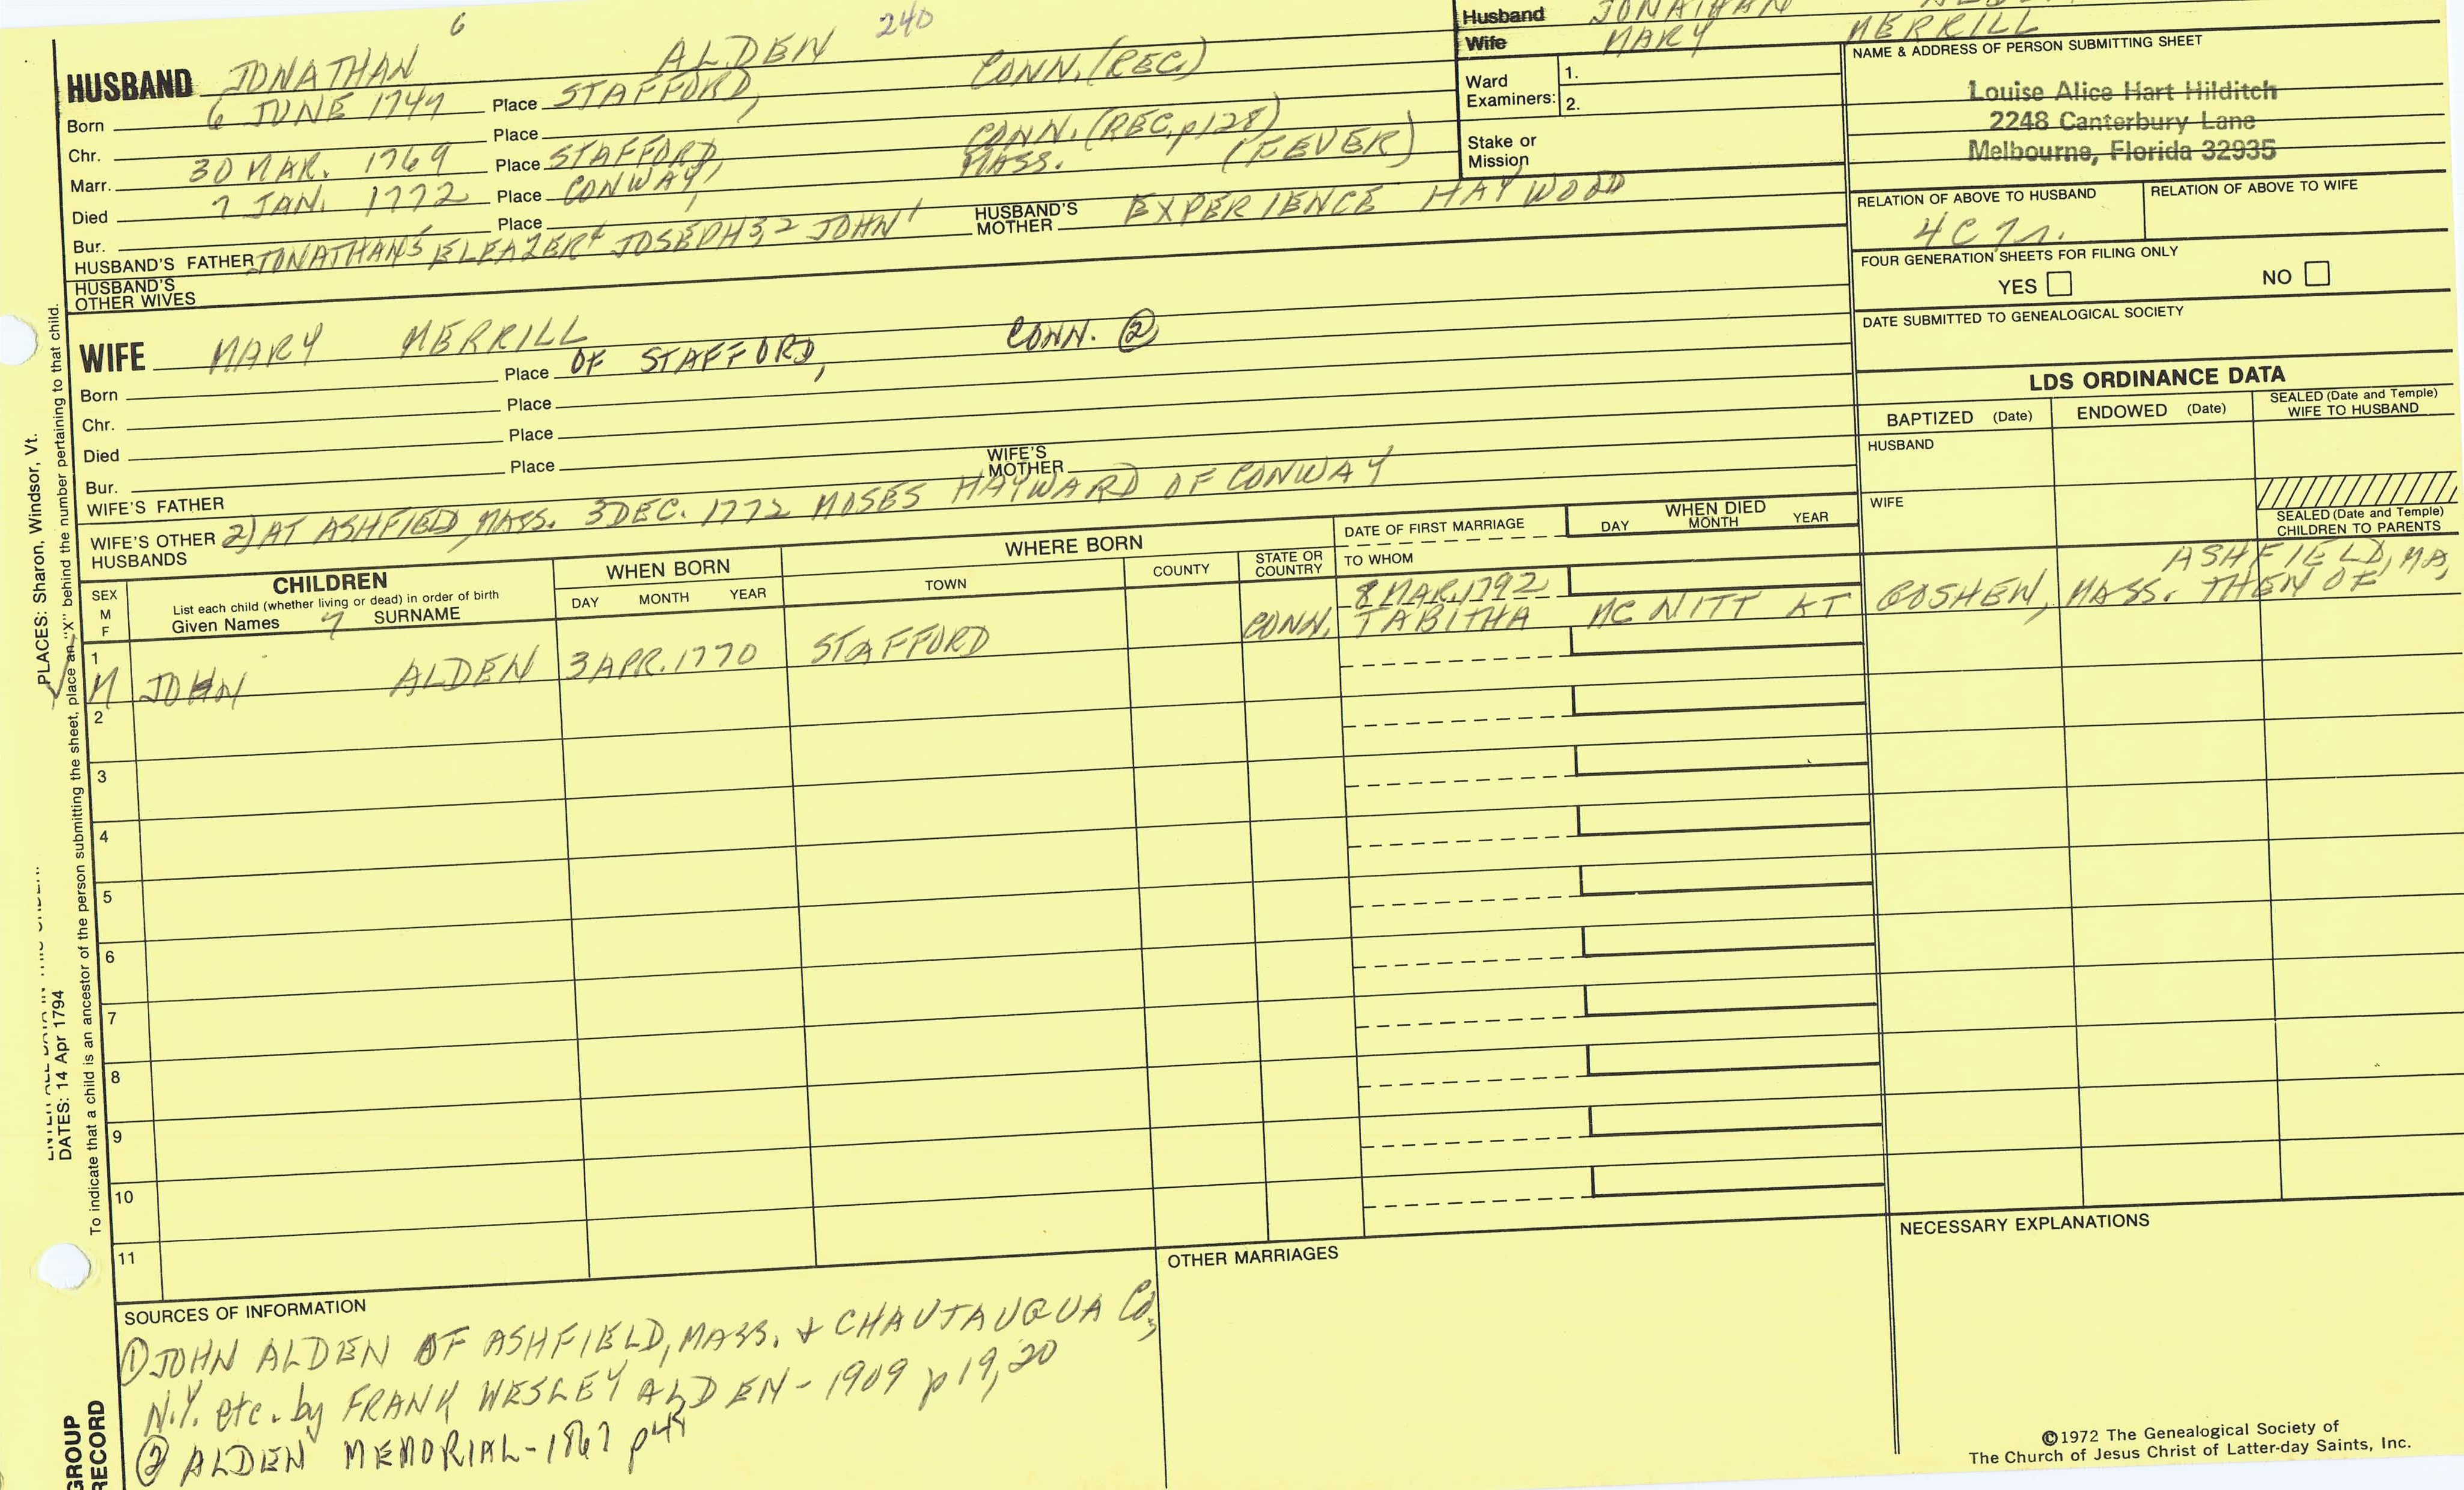 6
240
HUSBAND JONATHAN ALDEN
Born 6 JUNE 1749 Place STAFFORD, CONN. (REC.)
Chr. Place
Marr. 30 MAR. 1769 Place STAFFORD, CONN. (REC, p128)
Died 7 JAN. 1772 Place CONWAY, MASS. (FEVER)
Bur. Place
HUSBAND'S FATHER JONATHAN5 ELEAZER4 JOSEPH3,2 JOHN1 HUSBAND'S MOTHER EXPERIENCE HAYWOOD
HUSBAND'S OTHER WIVES
WIFE MARY MERRILL
Born Place OF STAFFORD, CONN. ②
Chr. Place
Died Place
Bur. Place
WIFE'S FATHER WIFE'S MOTHER
WIFE'S OTHER HUSBANDS 2) AT ASHFIELD, MASS. 3 DEC. 1772 MOSES HAYWARD OF CONWAY
Husband JONATHAN
Wife MARY MERRILL
Ward Examiners: 1.
2.
Stake or Mission
NAME & ADDRESS OF PERSON SUBMITTING SHEET
Louise Alice Hart Hilditch
2248 Canterbury Lane
Melbourne, Florida 32935
RELATION OF ABOVE TO HUSBAND RELATION OF ABOVE TO WIFE
4C7r.
FOUR GENERATION SHEETS FOR FILING ONLY
YES NO
DATE SUBMITTED TO GENEALOGICAL SOCIETY
LDS ORDINANCE DATA
BAPTIZED (Date) ENDOWED (Date) SEALED (Date and Temple) WIFE TO HUSBAND
HUSBAND
WIFE
SEALED (Date and Temple) CHILDREN TO PARENTS
SEX M F
CHILDREN
List each child (whether living or dead) in order of birth
Given Names 7 SURNAME
WHEN BORN
DAY MONTH YEAR
WHERE BORN
TOWN COUNTY STATE OR COUNTRY
DATE OF FIRST MARRIAGE
TO WHOM
WHEN DIED
DAY MONTH YEAR
1 M JOHN ALDEN 3 APR. 1770 STAFFORD CONN. 8 MAR. 1792
TABITHA MC NITT AT GOSHEN, MASS. THEN OF ASHFIELD, MA,
2
3
4
5
6
7
8
9
10
11
SOURCES OF INFORMATION
① JOHN ALDEN OF ASHFIELD, MASS. + CHAUTAUQUA Co,
N.Y. etc. by FRANK WESLEY ALDEN - 1909 p 19, 20
② ALDEN MEMORIAL - 1867 p
OTHER MARRIAGES
NECESSARY EXPLANATIONS
©1972 The Genealogical Society of
The Church of Jesus Christ of Latter-day Saints, Inc.
PLACES: Sharon, Windsor, Vt.
DATES: 14 Apr 1794
To indicate that a child is an ancestor of the person submitting the sheet, place an "X" behind the number pertaining to that child.
GROUP
RECORD